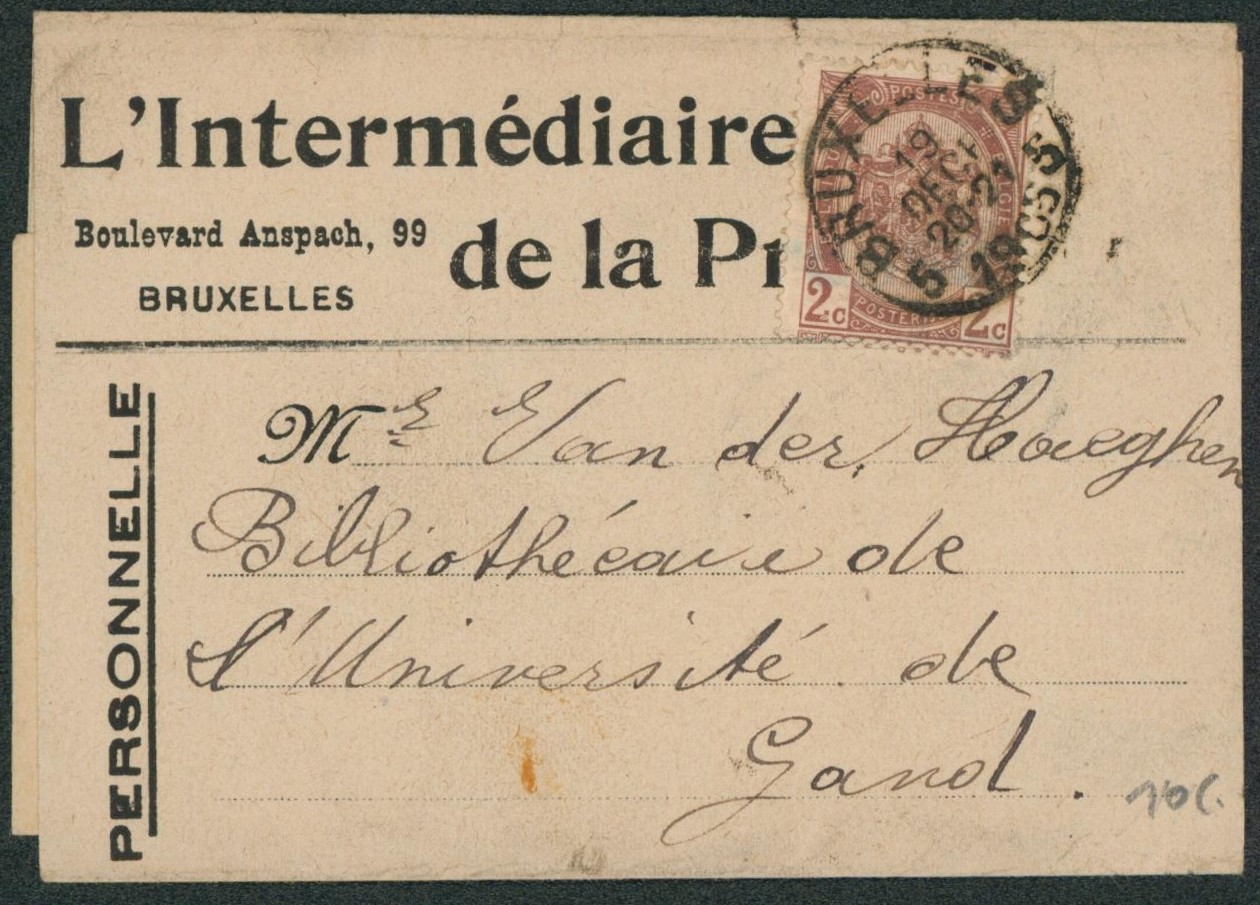 L'Intermédiaire
de la Pr
Boulevard Anspach, 99
BRUXELLES
POSTES
2c 2c
BRUXELLES 5
19
DECE
20-21
19
PERSONNELLE
Mr Van der Haeghen
Bibliothécaire de
l'Université de
Gand.
10c.